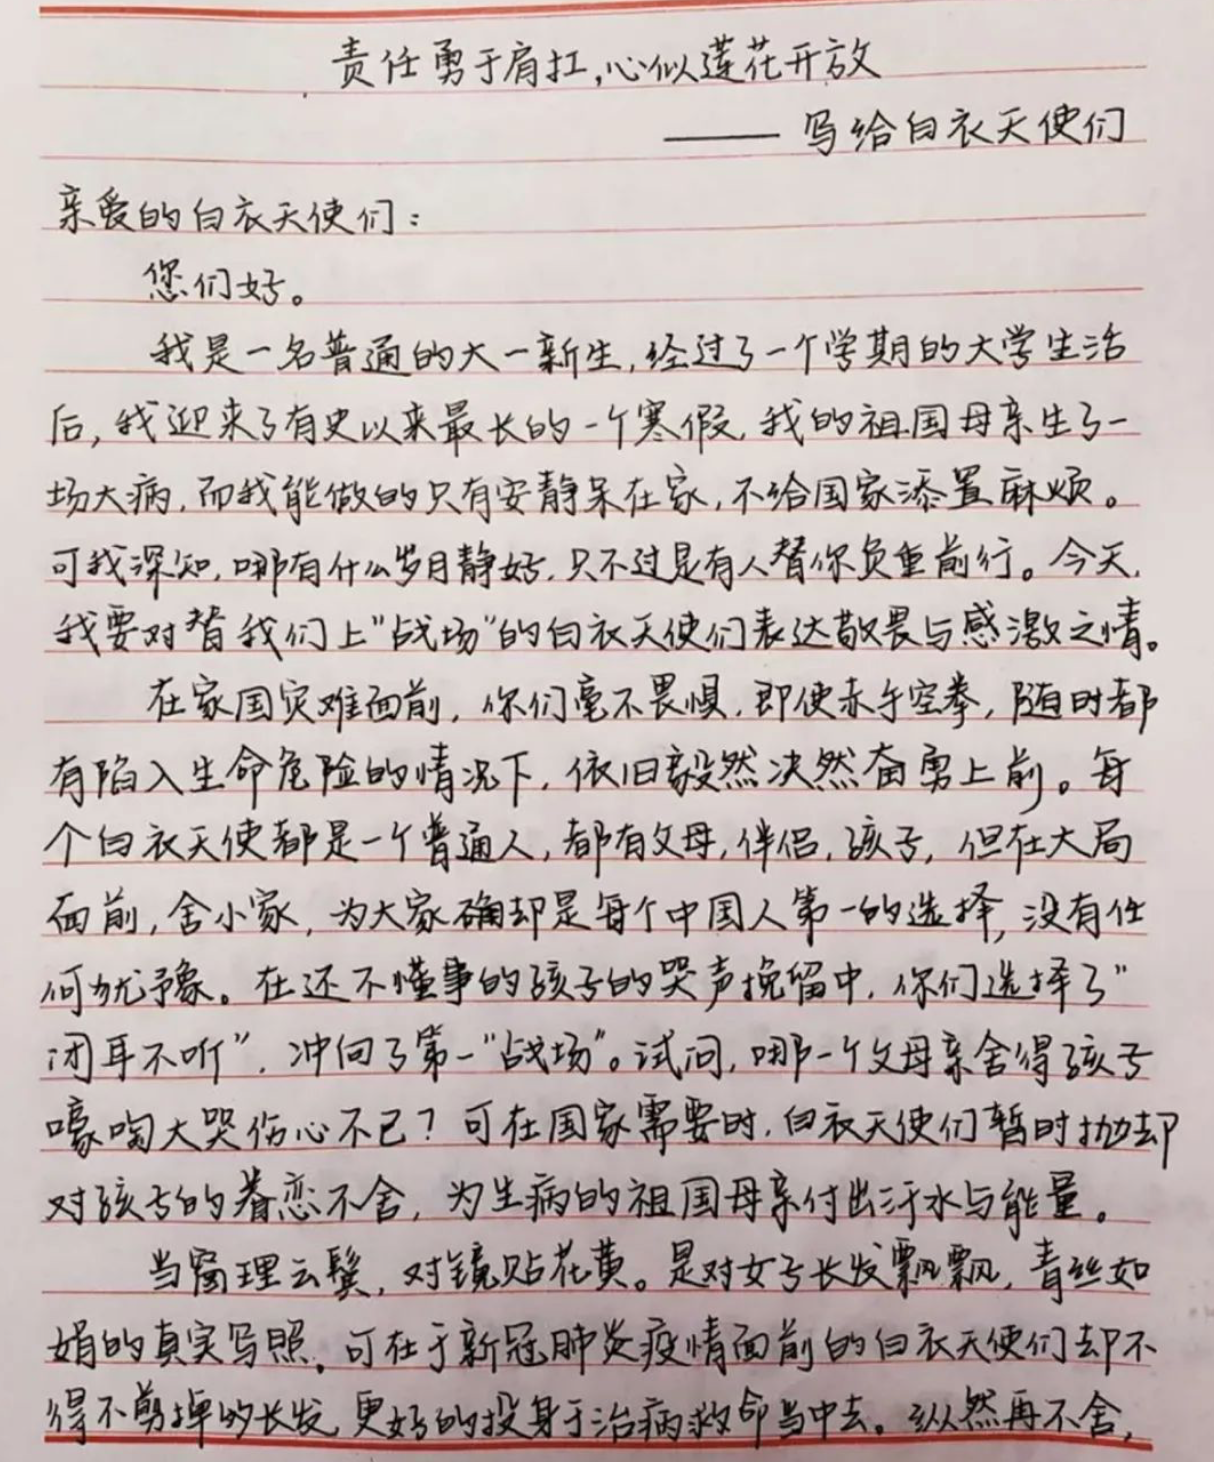 责任勇于肩扛,心似莲花开放
——写给白衣天使们
亲爱的白衣天使们：
您们好。
我是一名普通的大一新生,经过了一个学期的大学生活
后,我迎来了有史以来最长的一个寒假,我的祖国母亲生了一
场大病,而我能做的只有安静呆在家,不给国家添置麻烦。
可我深知,哪有什么岁月静好,只不过是有人替你负重前行。今天,
我要对替我们上"战场"的白衣天使们表达敬畏与感激之情。
在家国灾难面前,你们毫不畏惧,即使赤手空拳,随时都
有陷入生命危险的情况下,依旧毅然决然奋勇上前。每
个白衣天使都是一个普通人,都有父母,伴侣,孩子,但在大局
面前,舍小家,为大家确却是每个中国人第一的选择,没有任
何犹豫。在还不懂事的孩子的哭声挽留中,你们选择了"
闭耳不听",冲向了第一"战场"。试问,哪一个父母亲舍得孩子
嚎啕大哭伤心不已？可在国家需要时,白衣天使们暂时抛却
对孩子的眷恋不舍,为生病的祖国母亲付出汗水与能量。
当窗理云鬓,对镜贴花黄。是对女子长发飘飘,青丝如
娟的真实写照。可在于新冠肺炎疫情面前的白衣天使们却不
得不剪掉的长发,更好的投身于治病救命当中去。纵然再不舍,